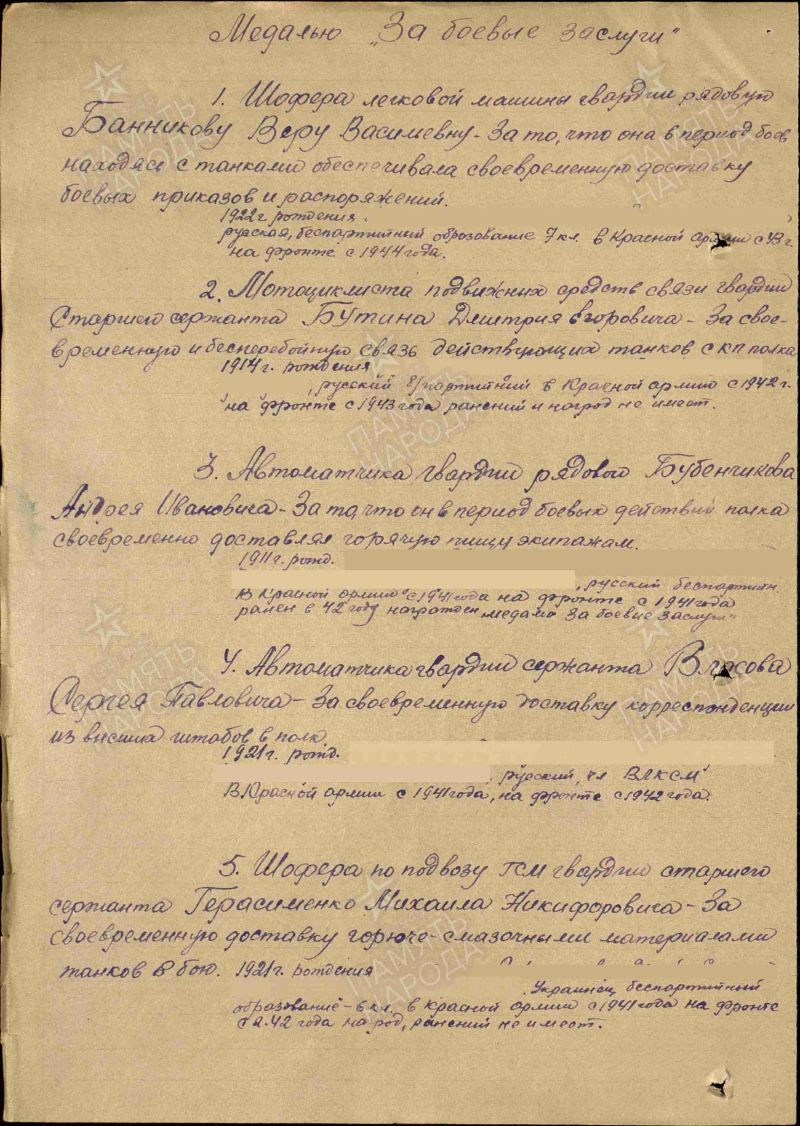 Медалью „За боевые заслуги"
1. Шофера легковой машины гвардии рядовую
Банникову Веру Васильевну - За то, что она в период боев
находясь с танками обеспечивала своевременную доставку
боевых приказов и распоряжений.
1922 г. рождения.
русская, беспартийный образование 7 кл. в Красной армии с 43 г.
на фронте с 1944 года.
2. Мотоциклиста подвижных средств связи гвардии
Старшего сержанта Бутина Дмитрия Егоровича - За свое-
временную и бесперебойную связь действующих танков с КП полка
1914 г. рождения
, русский б/партийный в Красной армию с 1942 г.
на фронте с 1943 года ранений и наград не имеет.
3. Автоматчика гвардии рядового Бубенчикова
Андрея Ивановича - За то, что он в период боевых действий полка
своевременно доставлял горячую пищу экипажам.
1911 г. рожд.
, русский беспартийн.
в Красной армию с 1941 года на фронте с 1941 года
ранен в 42 году награжден медалю За боевые заслуги"
4. Автоматчика гвардии сержанта Власова
Сергея Павловича - За своевременную доставку корреспонденции
из высших штабов в полк.
1921 г. рожд.
, русский, чл ВЛКСМ"
В Красной армии с 1941 года, на фронте с 1942 года.
5. Шофера по подвозу ГСМ гвардии старшего
сержанта Герасименко Михаила Никифоровича - За
своевременную доставку горюче-смазочными материалами
танков в бою. 1921 г. рождения
Украинец, беспартийный
образование - 6 кл. в Красной армии с 1941 года на фронте
с 2.42 года наград, ранений не имеет.
ПАМЯТЬ
НАРОДА